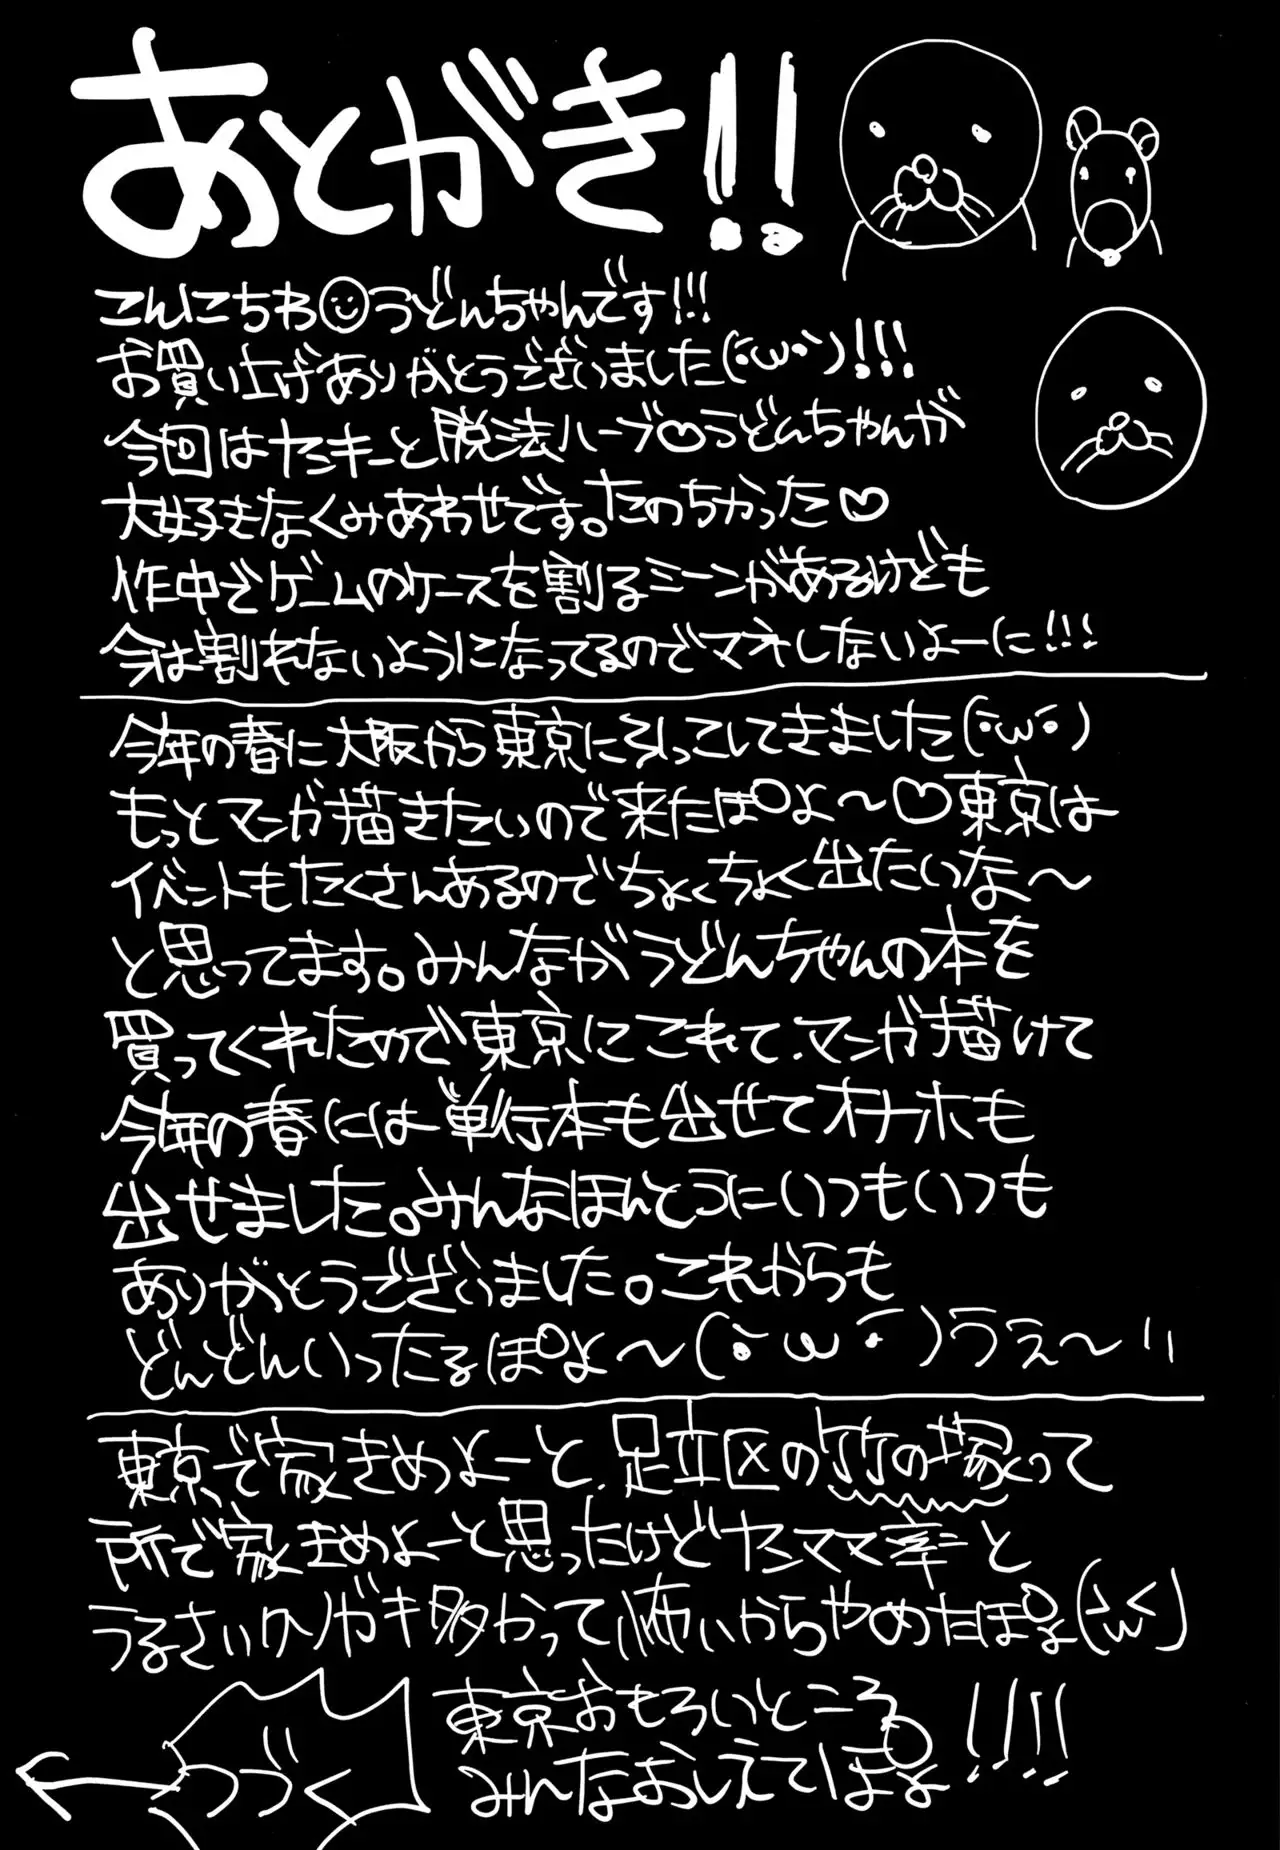 あとがき!!
こんにちわ☺うどんちゃんです!!!
お買い上げありがとうございました(・ω・)!!!
今回はヤミキーと脱法ハーブ♡うどんちゃんが
大好きなくみあわせです。たのちかった♡
作中でゲームのケースを割るシーンがあるけども
今は割れないようになってるのでマネしないよーに!!!
今年の春に大阪から東京に引っこしてきました(・ω・)
もっとマンガ描きたいので来たぽよ～♡東京は
イベントもたくさんあるのでちょくちょく出たいな～
と思ってます。みんながうどんちゃんの本を
買ってくれたので東京にこれて、マンガ描けて
今年の春には単行本も出せてオナホも
出せました。みんなほんとうにいつもいつも
ありがとうございました。これからも
どんどんいったるぽよ～(・ω・)うぇ～い
東京で家きめよーと、足立区の竹の塚って
所で家きめよーと思ったけどヤンママ率と
うるさいクソガキ多かって怖いからやめたぽよ(´ω`)
東京おもろいところ
みんなおしえてぽよ!!!!
つづく